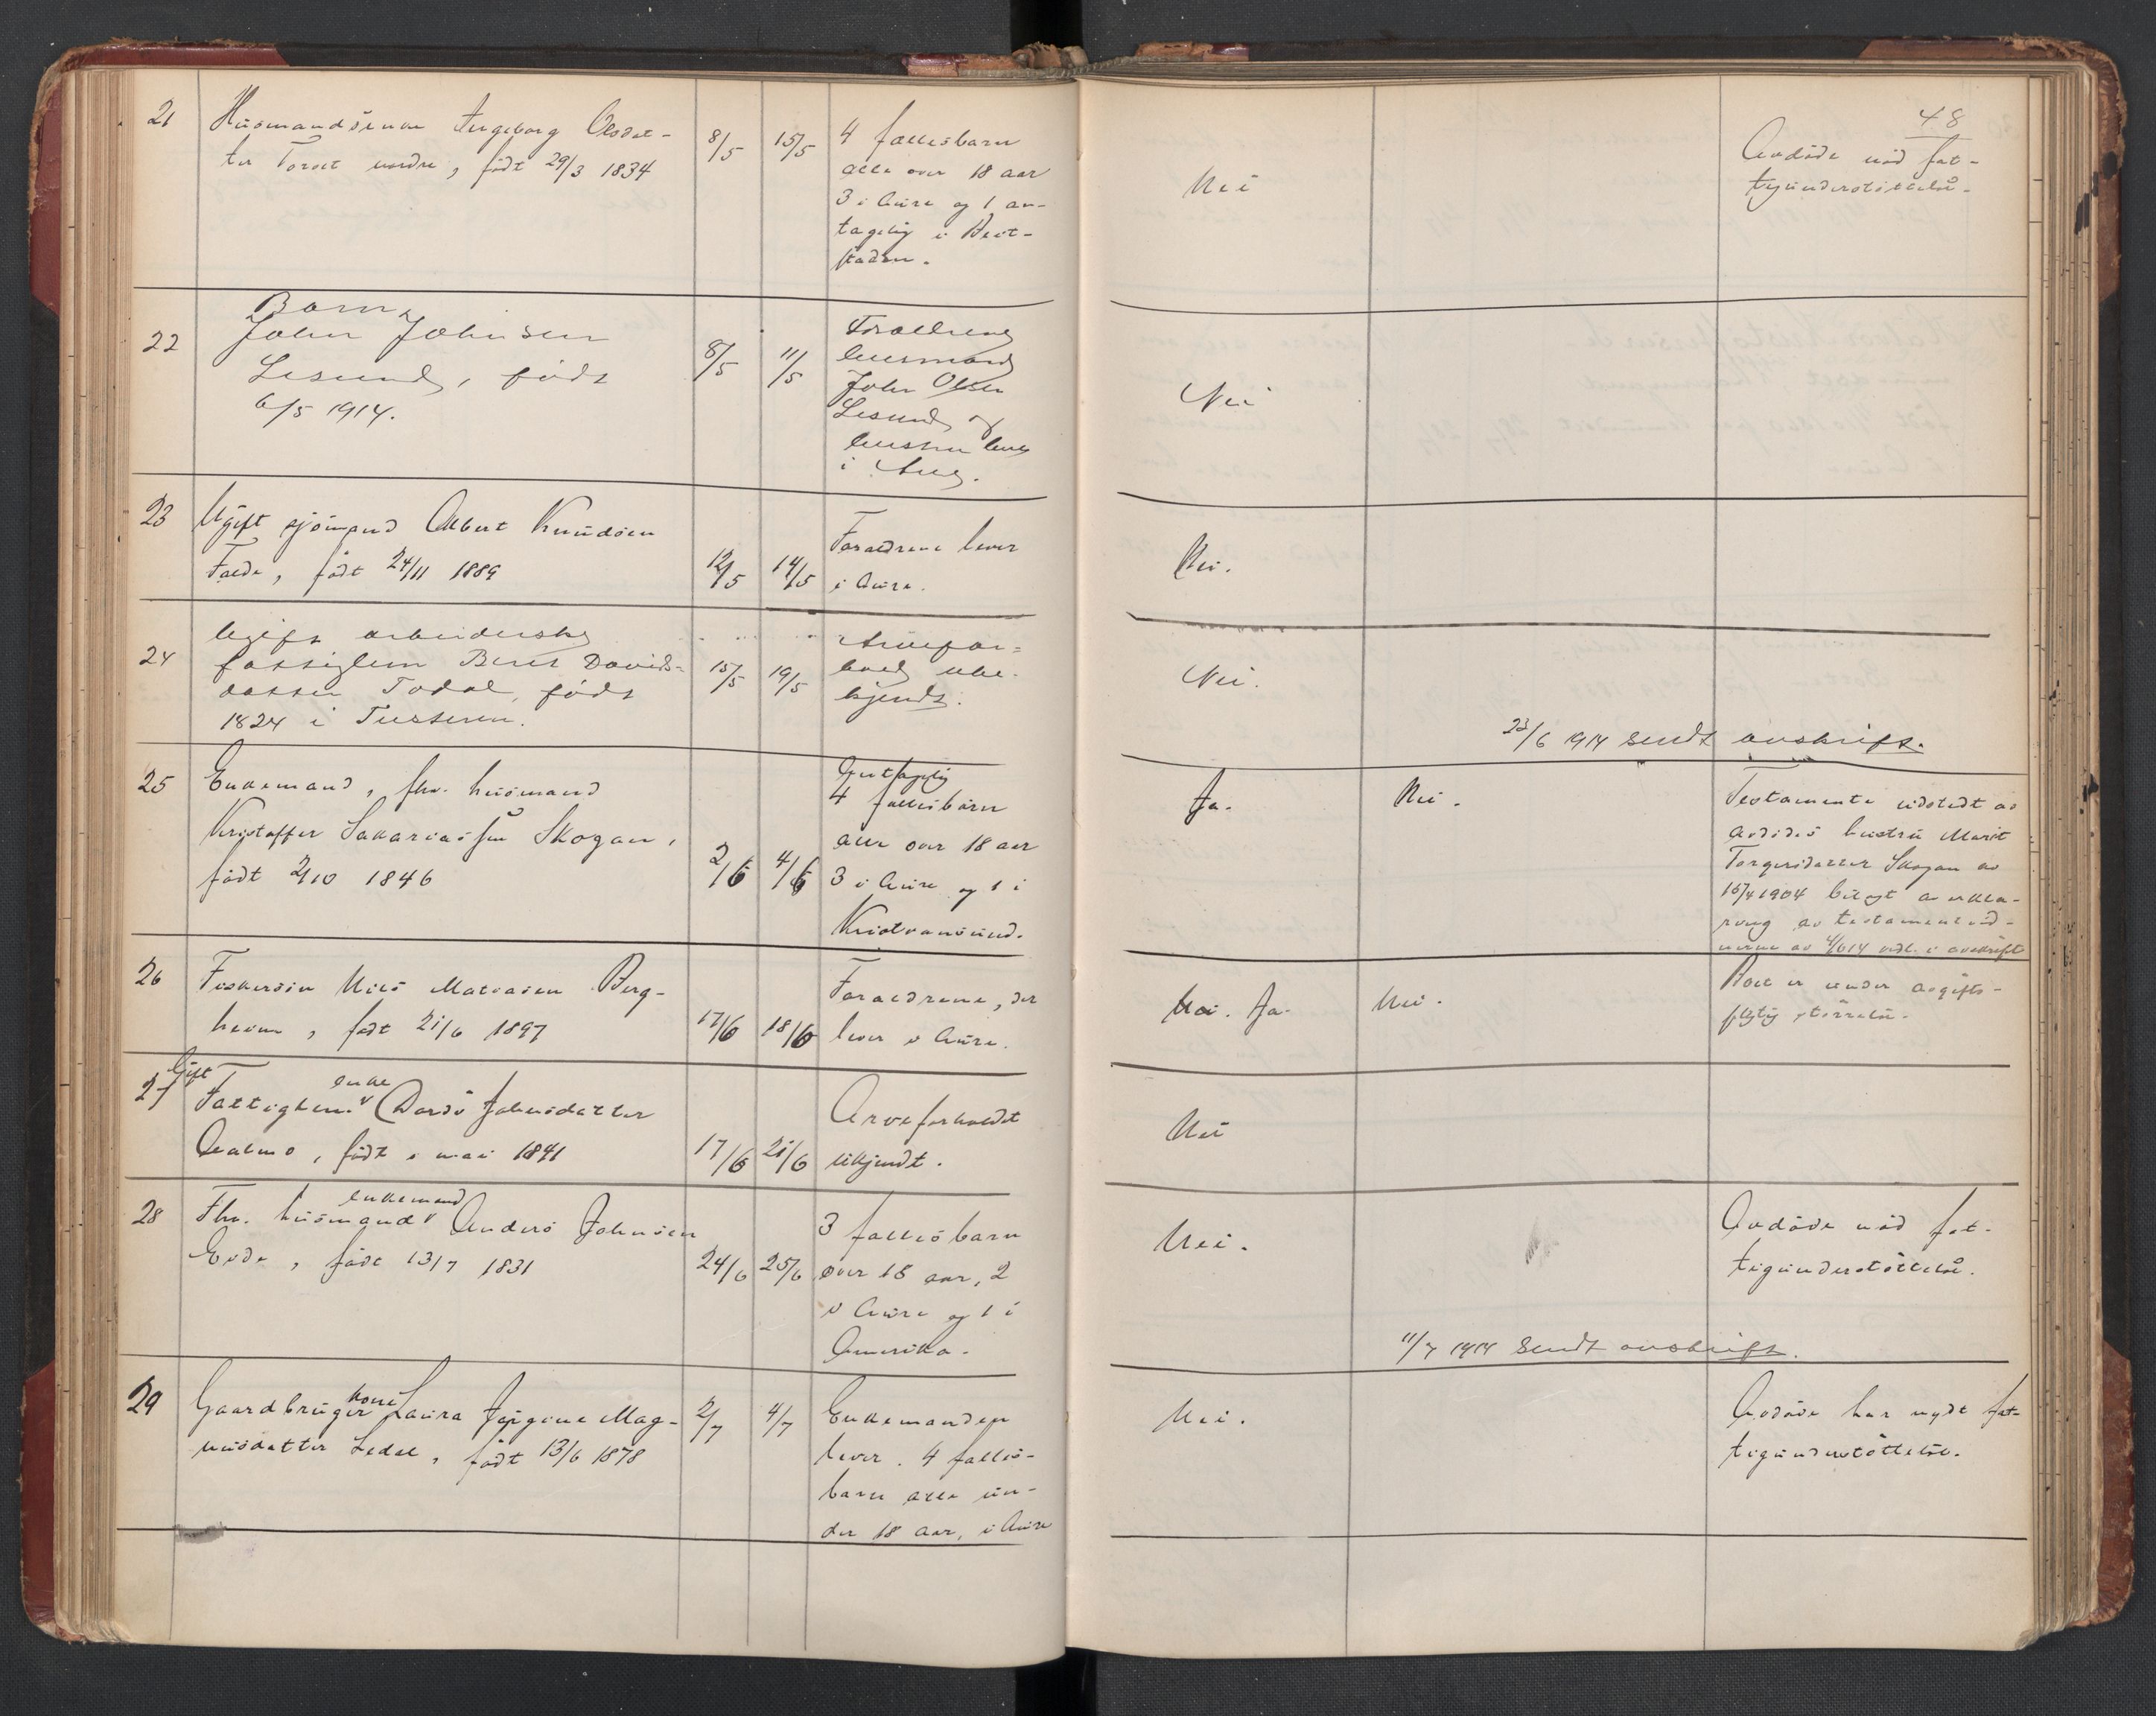 48
21 Husmandsenke Ingeborg Olsdat-
ter Torset nordre, født 29/3 1834
8/5 15/5
4 fællesbarn
alle over 18 aar
3 i Aure og 1 an-
tagelig i Beit-
staden.
Nei
Avdøde nød fat-
tigunderstøttelse.
22 Barn
John Johnsen
Lesund, født
6/5 1914.
8/5 11/5
Forældrene
husmand
John Olsen
Lesund og
hustru lever
i Aure.
Nei
23 Ugift sjømand Albert Knudsen
Folde, født 24/11 1889
12/5 14/5
Forældrene lever
i Aure.
Nei.
24 Ugift arbeiderske
fattiglem Beret Davids-
datter Todal, født
1824 i Tusteren.
15/5 19/5
Arvefor-
hold ube-
kjendt.
Nei.
23/6 1914 sendt avskrift.
25 Enkemand, fhv. husmand
Kristoffer Sakariassen Skogan,
født 2/10 1846
2/6 4/6
4 fællesbarn
alle over 18 aar
3 i Aure og 1 i
Kristiansund.
Ja.
Nei.
Testamente utstedt av
avdødes hustru Marit
Torgersdatter Skogan av
15/4 1904 bilagt av erklæ-
ring av testamentvid-
nerne av 4/6 14 vedl. i avskrift
26 Fiskersøn Nils Matiasen Berg-
hevn, født 21/6 1897
17/6 18/6
Forældrene, der
lever i Aure.
Nei. Ja.
Nei.
Boet er under avgifts-
pligtig størrelse.
27 Gift
Fattiglem enke Dordi Johnsdatter
Aalmo, født i mai 1841
17/6 21/6
Arveforholdet
ukjendt.
Nei
28 Fhv. husmand enkemand Anders Johnsen
Eide, født 13/7 1831
24/6 25/6
3 fællesbarn
over 18 aar, 2
i Aure og 1 i
Amerika.
Nei.
Avdøde nød fat-
tigunderstøttelse.
11/7 1914 sendt avskrift.
29 Gaardbruger kone Laura Jørgine Mag-
nusdatter Ledal, født 13/6 1878
2/7 4/7
Enkemanden
lever. 4 fælles-
barn alle un-
der 18 aar, i Aure
Nei.
Avdøde har nydt fat-
tigunderstøttelse.